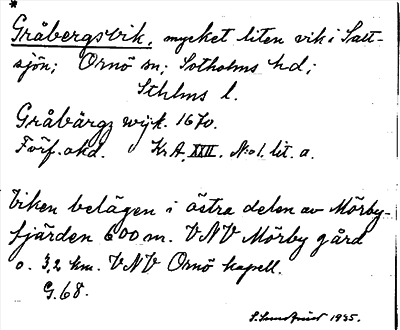 *
Gråbergsvik, mycket liten vik i Salt-
sjön; Ornö sn; Sotholms hd;
Sthlms l.
Gråbärgz wijk. 1670.
Förf. okd. Kr A. XXII. No 1. lit. a.
Viken belägen i östra delen av Mörby-
fjärden 600 m. VNV Mörby gård
o. 3,2 km. VNV Ornö kapell.
G. 68.
1935.